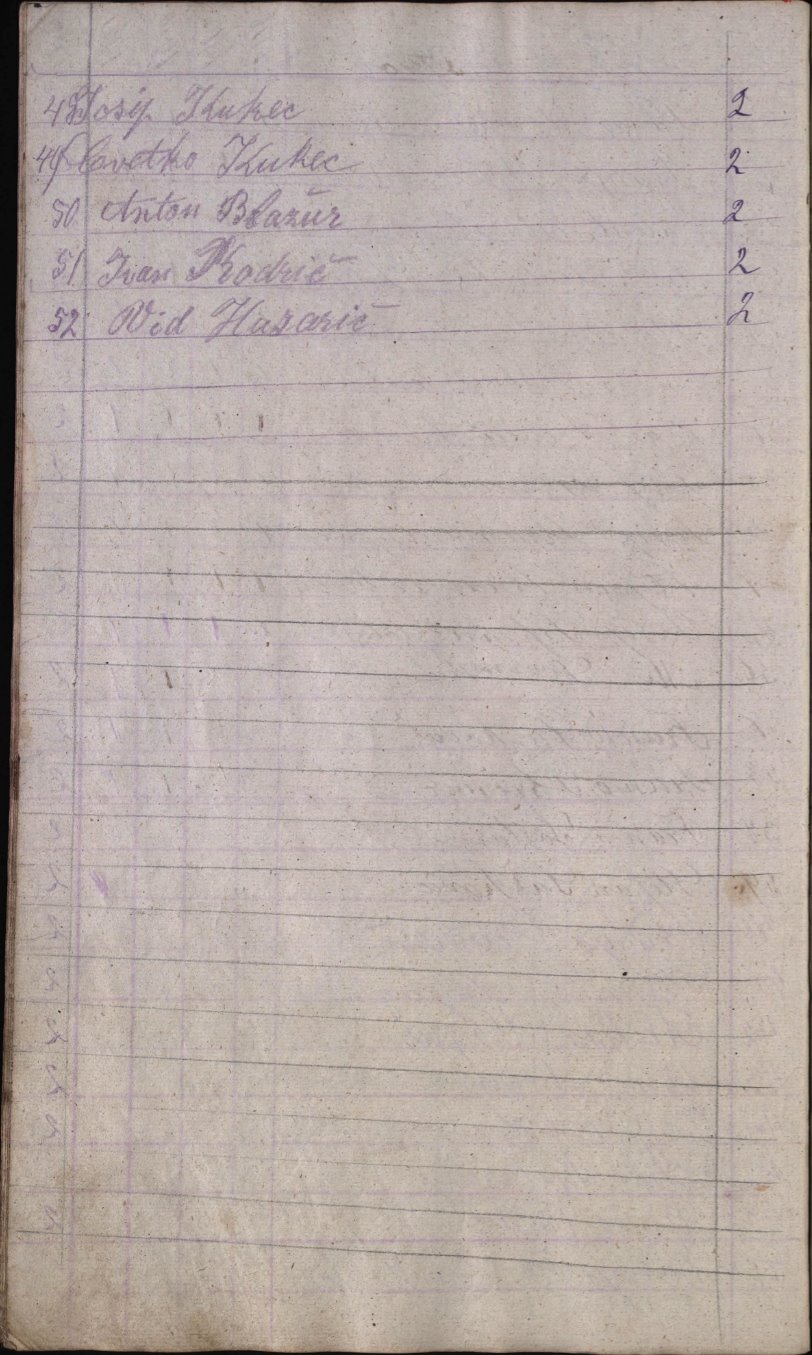 48 Josip Kukec 2
49 Cvetko Kukec 2
50 Anton Blažur 2
51 Ivan Kodrič 2
52 Vid Hazarič 2